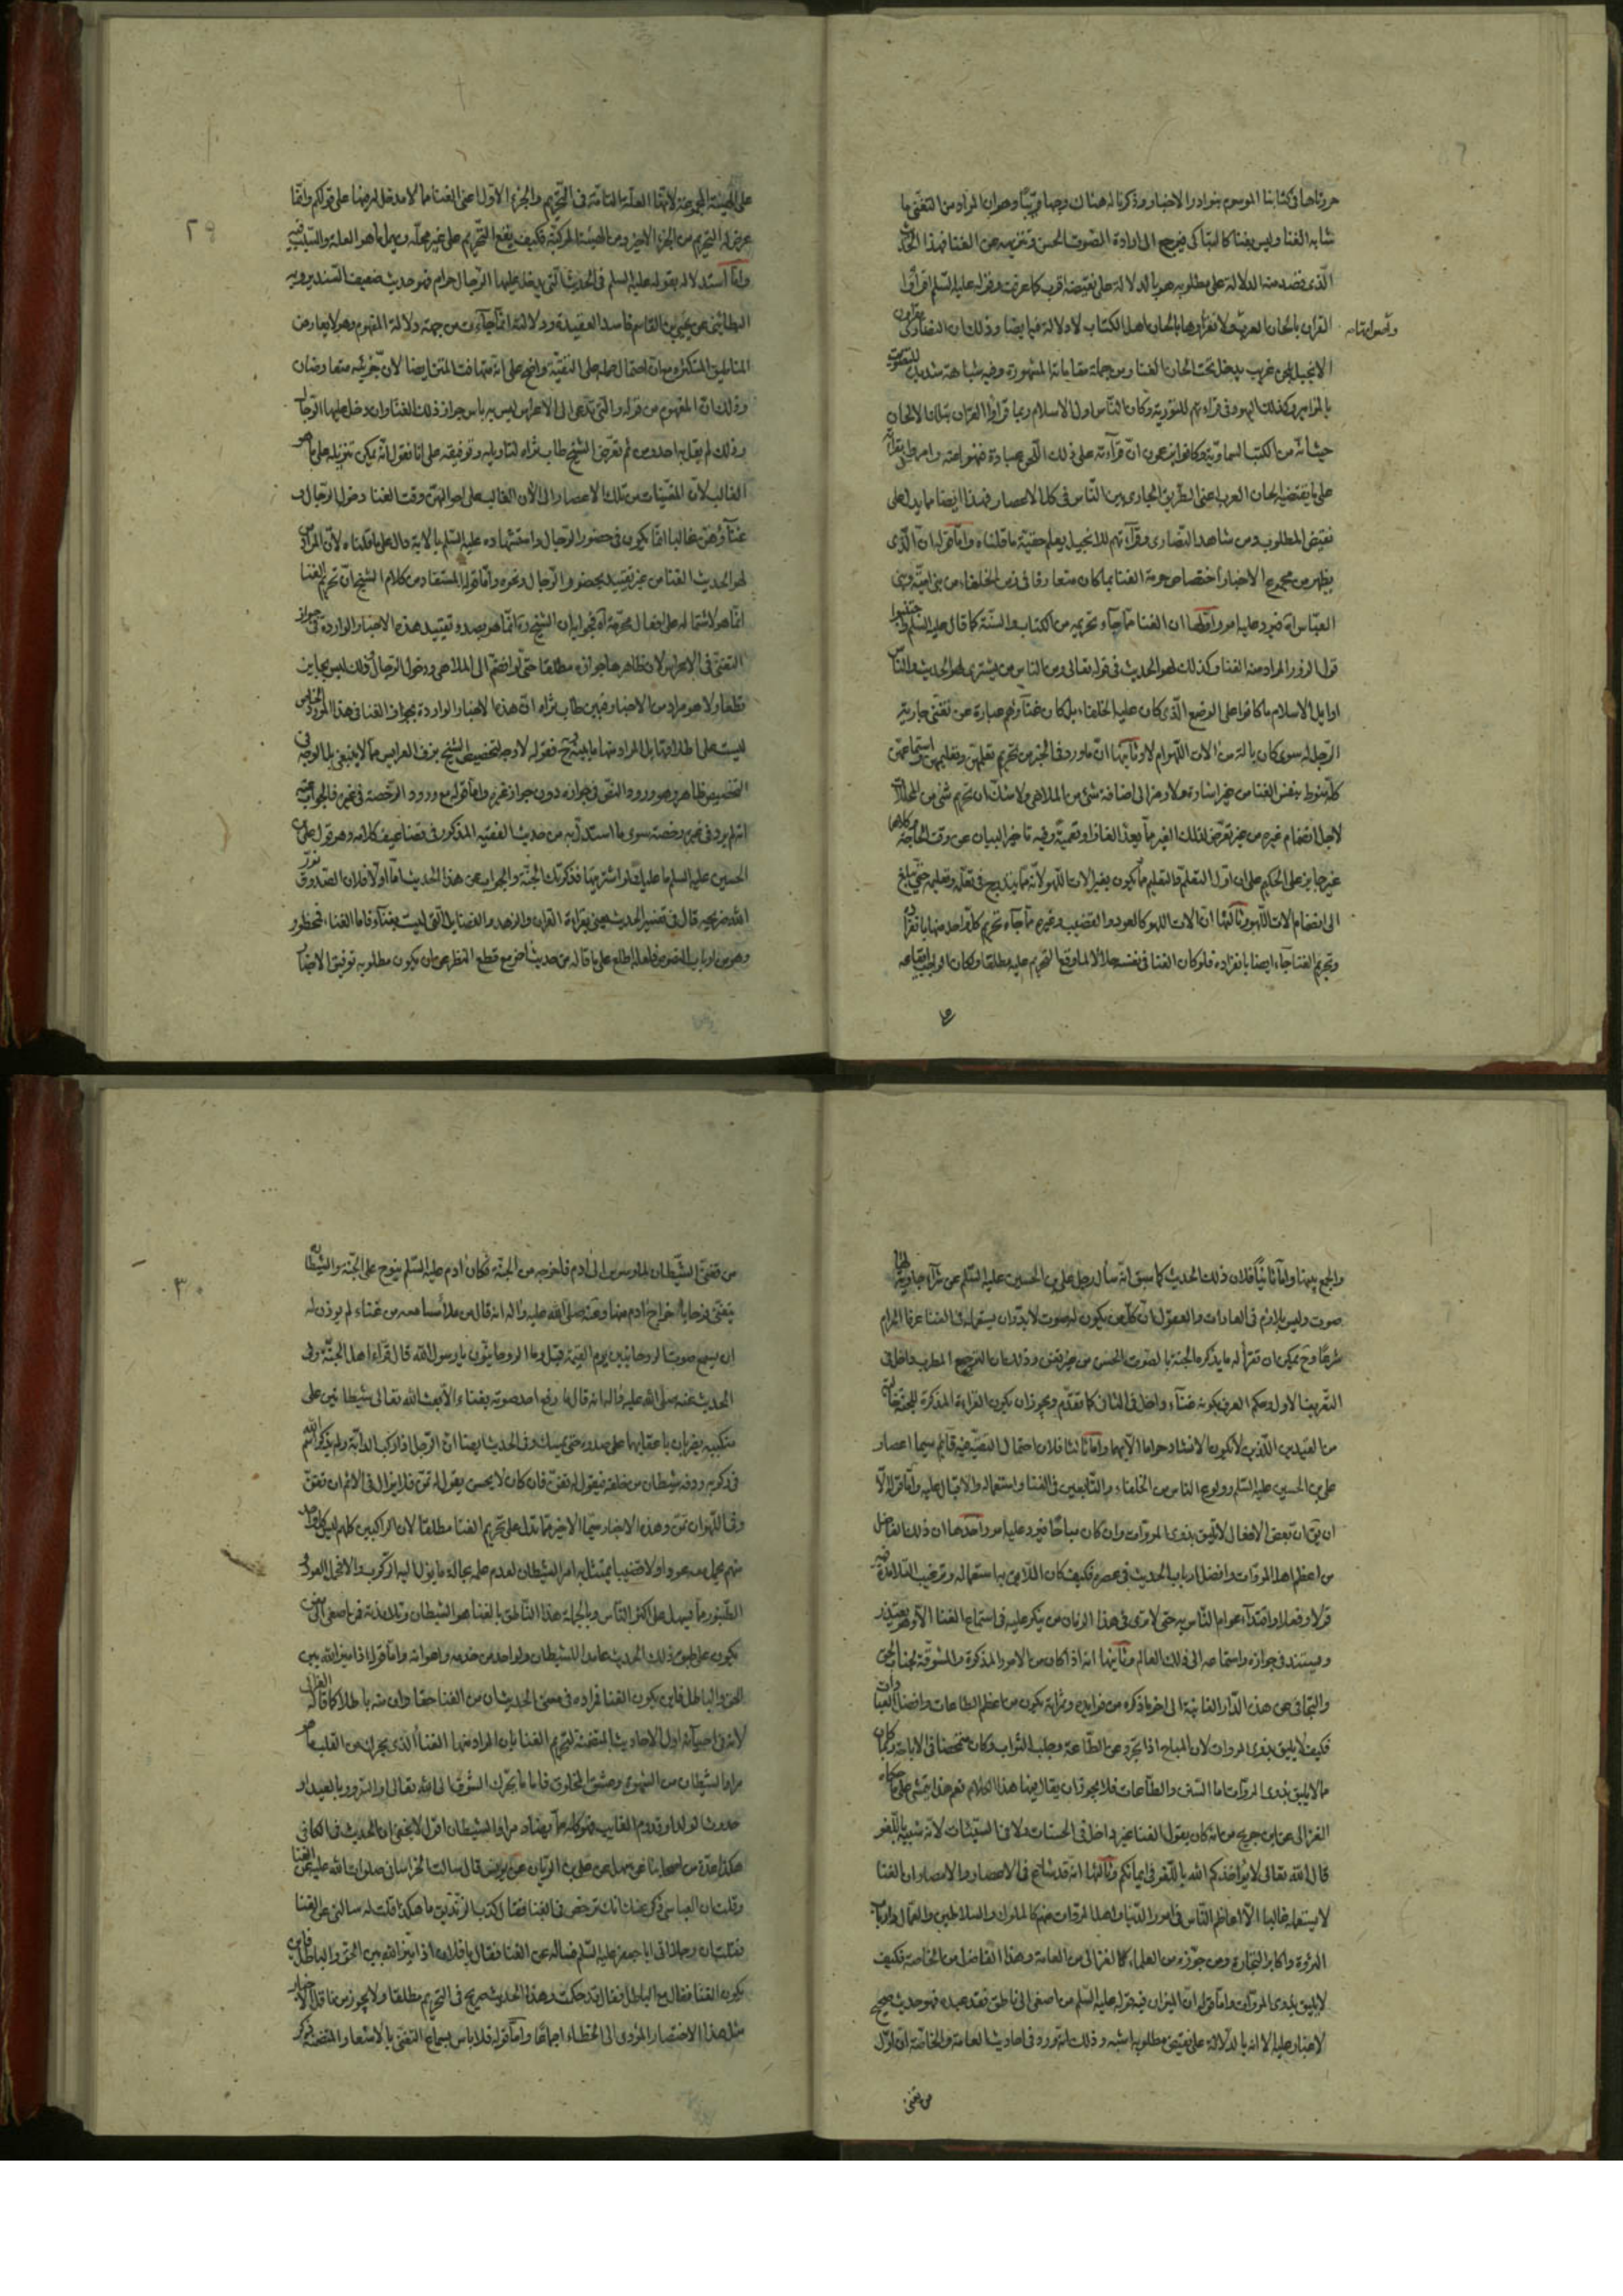 حررناها في كتابنا الموسوم بنوادر الاخبار وذكرنا له هناك وجها قريبا وهو ان المراد من التغني ما
شابه الغنا وليس بغنا
الذي قصد منه الدلالة على مطلوبه هو بالدلالة على نقيضه اقرب كما عرفت وقوله عليه السلم اقرأوا
القران بالحان العرب ولا تقرأوها بالحان اهل الكتاب لا دلالة فيه ايضا وذلك ان النصارى
الانجيل لحن غريب يدخل تحت الحان الغنا ومن جملة مقاماته المشهورة وفيه شباهة
بالمزامير وكذلك اليهود في قراءتهم للتورية وكان الناس اول الاسلام ربما قرأوا القران بتلك الالحان
حيث انه من الكتب السماوية وكانوا يزعمون ان قرآءته على ذلك اللحن عبادة فنهوا عنه
على ما يقتضيه الحان العرب اعني الطريق الجاري بين الناس في كل الاعصار فهذا ايضا مما يدل على
نقيض المطلوب ومن شاهد النصارى وقرآءتهم للانجيل يعلم حقية ما قلناه واما قوله ان الذي
يظهر من مجموع الاخبار اختصاص حرمة الغنا بما كان متعارفا في زمن الخلفاء من بني امية وبني
العباس اه فيرد عليه امور اولها ان الغنا مما جآء تحريمه من الكتاب والسنة كما قال عليه السلم
قول الزور المراد منه الغنا وكذلك لهو الحديث في قوله تعالى ومن الناس من يشتري لهو الحديث والناس
اوايل الاسلام ما كانوا على الوضع الذي كان عليه الخلفاء بل كان غنآؤهم عبارة عن تغني جارية
الرجل له سوى كان بالة من الات اللهو ام لا وثانيها ان ما ورد في الخبر من تحريم تعلمهن وتعليمهن
كله منوط بنفس الغنا من غير اشارة ولا رمز الى اضافة شئ من الملاهي ولا شك ان تحريم شئ من المحللات
لاجل انضمام غيره من غير تعرض لذلك الغير مما يعد الغازا وتعمية وفيه تاخير البيان عن وقت الحاجة
غير جايز على الحكيم على ان اول التعلم والتعليم مما يكون بغير الات اللهو لانه مما يتدرج في تعلمه وتعليمه حتى يبلغ
الى انضمام الات اللهو وثالثها ان الات اللهو كالعود والقضيب وغيره مما جآء تحريم كل واحد منها بانفراده
وتحريم الغنا جآء ايضا بانفراده فلو كان الغنا في نفسه حلالا لما وقع التحريم عليه مطلقا ولكان الواجب ايقاعه
على الهيئة المجموعة لانها العلة التامة في التحريم والجزء الاول اعني الغنا مما لا مدخل له فيها على قولكم وانما
عرض له التحريم من الجزء الاخير ومن الهيئة المركبة فكيف يقع التحريم على غير محله ويهمل ما هو العلة والسبب فيه
واما استدلاله بقوله عليه السلم في الحديث التي يدخل عليها الرجال حرام فهو حديث ضعيف السند يرويه
البطائني عن يحيى بن القاسم فاسد العقيدة ودلالته انما جاءت من جهة دلالة المفهوم وهو لا يعارض
وذلك ان المفهوم من قوله والتي تدعى الى الاعراس ليس به باس جواز ذلك الغنا وان دخل عليها الرجال
وذلك لم يقل به احد ومن ثم تعرض الشيخ طاب ثراه لتاويله وتوفيقه على انا نقول انه يمكن تنزيله على ما هو
الغالب لان المغنيات من تلك الاعصار الى الان الغالب على احوالهن وقت الغنا دخول الرجال
غنآؤهن غالبا انما يكون في حضور الرجال واستشهاده عليه السلم بالاية دال على ما قلناه لان المراد من
لهو الحديث الغنا من غير تقييد بحضور الرجال وغيره واما قوله المستفاد من كلام الشيخ ان تحريم الغنا
انما هو لاشتماله على افعال محرمة اه فجوابه ان الشيخ ره انما هو بصدد تقييد هذه الاخبار الواردة في جواز
التغني في الاعراس لان ظاهرها جوازه مطلقا حتى لو انضم الى الملاهي ودخول الرجال وذلك ليس بجايز
قطعا ولا هو مراد من الاخبار فبين طاب ثراه ان هذه الاخبار الواردة بجواز الغنا في هذا المورد الخاص
ليست على اطلاقها بل المراد منها ما بينه فقوله لا وجه لتخصيص الشيخ بزف العرايس مما لا ينبغي بل الوجه في
التخصيص ظاهر وهو ورود النص في جوازه دون جواز غيره واما قوله مع ورود الرخصة في غيره فالجواب عنه
انه لم يرد في غيره رخصة سوى ما استدل به من حديث الفقيه المذكور في تضاعيف كلامه وهو قول علي بن
الحسين عليه السلم ما عليك لو اشتريتها فذكرتك الجنة والجواب عن هذا الحديث اما اولا فلان الصدوق نور
الله ضريحه قال في تفسير الحديث يعني بقراءة القران والزهد والفضايل التي ليست بغنآء فاما الغناء فمحظور
وهو من ارباب النصوص فلعله اطلع على ما قاله من حديث اخر مع قطع النظر عن ان يكون مطلوبه توفيق الاخبار
والجمع بينها واما ثانيا فلان ذلك الحديث كما سبق انه سأل رجل علي بن الحسين عليه السلم عن شرآء جارية لها
صوت وليس بلازم في العادات والعقول ان كل من يكون له صوت لا بد وان يستعمله في الغنا عرفا الحرام
شرعا وح يمكن ان تقرأ له ما يذكره الجنة بالصوت الحسن من غير تغن وذلك ان الترجيع المطرب داخل في
التعريف الاول وحكم العرف بكونه غنآء داخل في الثاني كما تقدم ويجوز ان يكون القراءة المذكرة للجنة خالية
من القيدين اللذين لا يكون الانشاد حراما الا بهما واما ثالثا فلان احتمال التقية فيه قايم سيما اعصار
علي بن الحسين عليه السلم وولوع الناس من الخلفاء والتابعين في الغنا واستعماله والاقبال عليه واما قوله الا
ان يق ان بعض الافعال لا يليق بذوي المروات وان كان مباحا فيرد عليه امور احدها ان ذلك الفاضل
من اعظم اهل المروات وافضل ارباب الحديث في عصره فكيف كان اللايق به استعماله وترغيب التلامذة فيه
قولا وفعلا واقتدآء عوام الناس به حتى لا ترى في هذا الزمان من ينكر عليه في استماع الغنا الا وهو يعتذر
ويستند في جوازه واستماعه الى ذلك العالم وثانيها انه اذا كان من الامور المذكرة والمشوقة لجناب الحق
والتجافي عن هذه الدار الفانية الى اخر ما ذكره من فوايده وثمراته يكون من اعظم الطاعات وافضل العبادات
فكيف لا يليق بذوي المروات لان المباح اذا تجرد عن الطاعة وجلب الثواب وكان متمحضا في الاباحة ربما كان
مما لا يليق بذوي المروات اما السنن والطاعات فلا يجوز ان يقال فيها هذا الكلام نعم هذا يتمشى على ما حكاه
الغزالي عن ابن جريج من انه كان يقول الغنا غير داخل في الحسنات ولا في السيئات لانه شبيه باللغو
قال الله تعالى لا يؤاخذكم الله باللغو في ايمانكم وثالثها انه قد شاع في الاعصار والامصار ان الغنا
لا يستعمله غالبا الا اعاظم الناس في امور الدنيا واهل المروات منهم كالملوك والسلاطين والعمال وارباب
الثروة واكابر التجارة ومن جوزه من العلماء كالغزالي من العامة وهذا الفاضل من الخاصة فكيف
لا يليق بذوي المروآت واما قوله ان الميزان فيه قوله عليه السلم من اصغى الى ناطق فقد عبده فهو حديث صحيح
لا غبار عليه الا انه بالدلالة على نقيض مطلوبه اشبه وذلك انه ورد في احاديث العامة والخاصة ان اول
من تغنى
من تغنى الشيطان لما وسوس الى ادم فاخرجه من الجنة فكان ادم عليه السلم ينوح على الجنة والشيطان
يتغنى فرحا باخراج ادم منها وعنه صلى الله عليه واله انه قال من ملأ مسامعه من غناء لم يوذن له
ان يسمع صوت الروحانيين يوم القيمة قيل وما الروحانيون يا رسول الله قال قراء اهل الجنة وفي
الحديث عنه صلى الله عليه واله انه قال ما رفع احد صوته بغناء الا بعث الله تعالى شيطانين على
منكبيه يضربان باعقابهما على صدره حتى يمسك وفي الحديث ايضا ان الرجل اذا ركب الدابة ولم يذكر اسم الله
في ركوبه ردفه شيطان من خلفه فيقول له تغن فان كان لا يحسن يقول له تمن فلا يزال في الاثم ان تغنى
وفي اللهو ان تمنى وهذه الاخبار سيما الاخير مما تدل على تحريم الغنا مطلقا لان الراكبين كلهم ليس كل واحد
منهم يحمل معه عودا ولا قضيبا يمتثل به امر الشيطان لعدم علمه بحاله ما يؤل اليه الركوب والا فحمل العود
الطنبور مما يسهل على اكثر الناس وبالجملة هذا الناطق بالغنا هو الشيطان وتلامذته فمن اصغى الى من
يكون على طبق ذلك الحديث عابدا للشيطان ولواحد من خدمه واعوانه واما قوله اذا ميز الله بين
الحق والباطل فاين يكون الغنا فمراده في معنى الحديث ان من الغنا حقا وان منه باطلا كما قاله الغزالي
لانه في احيآئه اول الاحاديث المتضمنة لتحريم الغنا بان المراد منها الغنا الذي يحرك من القلب ما هو
مراد الشيطان من الشهوة وعشق المخلوق فاما ما يحرك الشوق الى الله تعالى او السرور بالعيد او
حدوث الولد او قدوم الغايب فهو كله مما يضاد مراد الشيطان اقول لا يخفى ان الحديث في الكافي
هكذا عدة من اصحابنا عن سهل عن علي بن الريان عن يونس قال سالت الخراساني صلوات الله عليه عن الغنا
وقلت ان العباسي ذكر عنك انك ترخص في الغنا فقال كذب الزنديق ما هكذا قلت له سالني عن الغنا
فقلت ان رجلا اتى ابا جعفر عليه السلم فساله عن الغنا فقال يا فلان اذا ميز الله بين الحق والباطل فاين
يكون الغنا فقال مع الباطل فقال قد حكمت وهذا الحديث صريح في التحريم مطلقا ولا يجوز من ناقل الاخبار
مثل هذا الاختصار المؤدي الى الخطاء اجماعا واما قوله فلا باس بسماع التغني بالاشعار المتضمنة ذكر